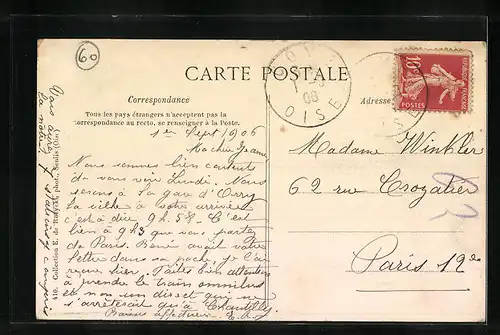 CARTE POSTALE
Correspondance
Tous les pays étrangers n'acceptent pas la
correspondance au recto, se renseigner à la Poste.
Adresse
1er Sept 1906
Ma chère Jeanne
Nous sommes bien contents
de vous voir Lundi. Nous
serons à la gare d'Orry
la ville à votre arrivée
c'est à dire 9h.58 - C'est
bien à 9h3 que vous partez
de Paris. avait votre
lettre dans sa poche, je l'ai
hier. Faites bien attention
à prendre le train omnibus
et non un direct qui ne
s'arrêterait qu'à Chantilly
Baisers affectueux
Madame Winkler
62 rue Crozatier
Paris 12e
410. Collection E. de phot. Senlis (Oise)
OISE
06
REPUBLIQUE FRANÇAISE
10c
POSTES